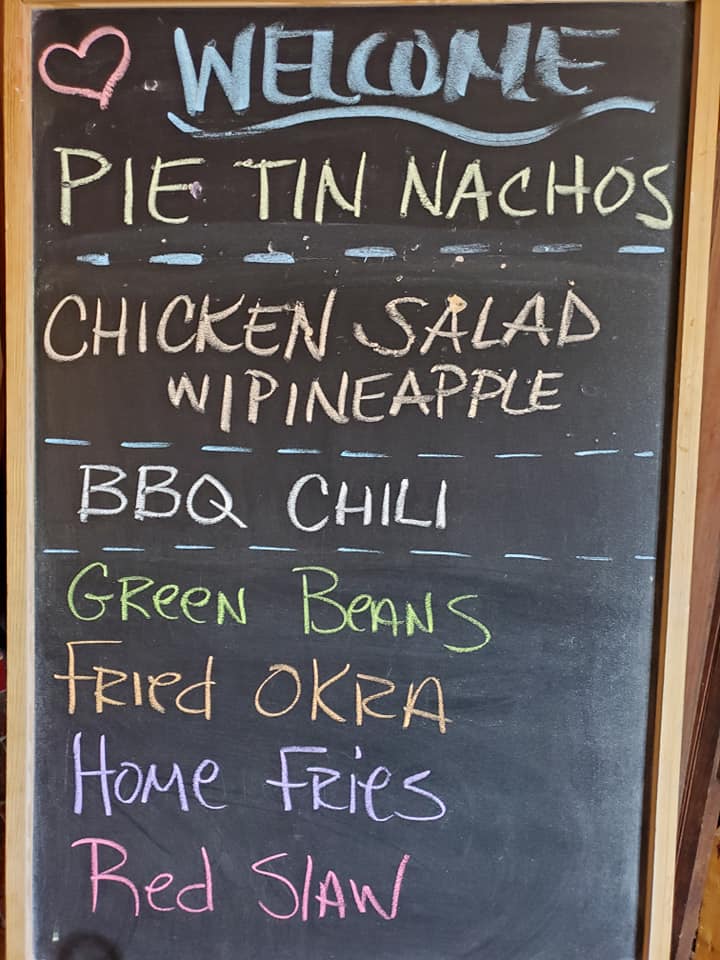 WELCOME
PIE TIN NACHOS
CHICKEN SALAD
W/PINEAPPLE
BBQ CHILI
GReeN BeANS
FRied OKRA
HOMe FRies
Red SlAW